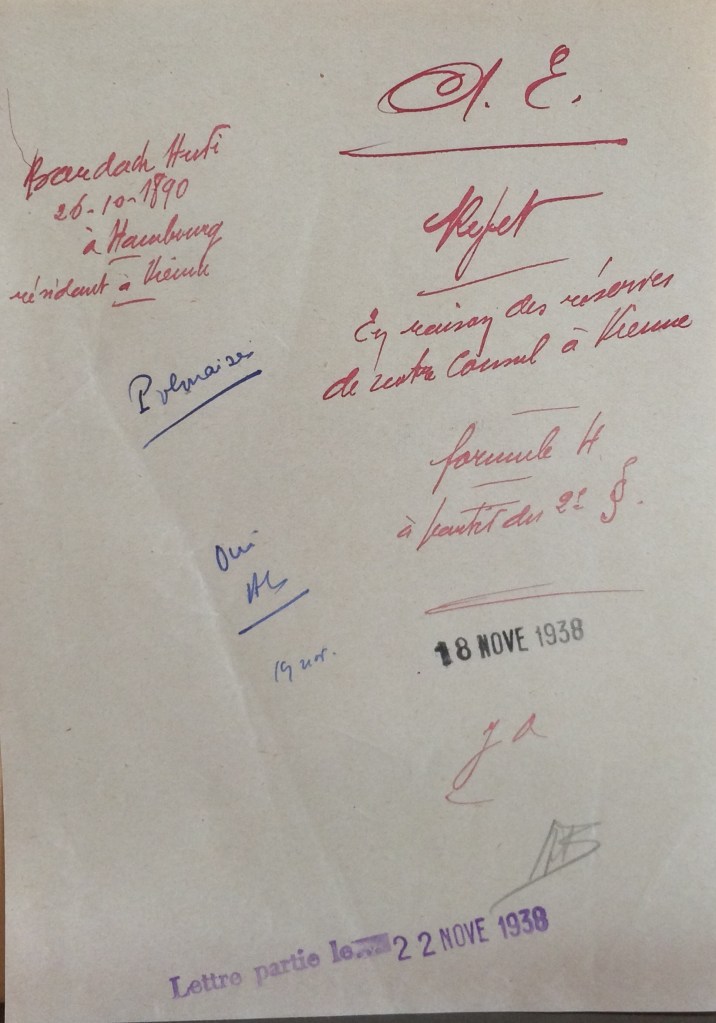 A. E.
Baudach Huti
26-10-1890
à Hambourg
résidant à Vienne
Rejet
En raison des réserves
de notre Consul à Vienne
Polonaise
formule H
à partir du 2e §.
Oui
19 nov.
18 NOVE 1938
Lettre partie le 22 NOVE 1938